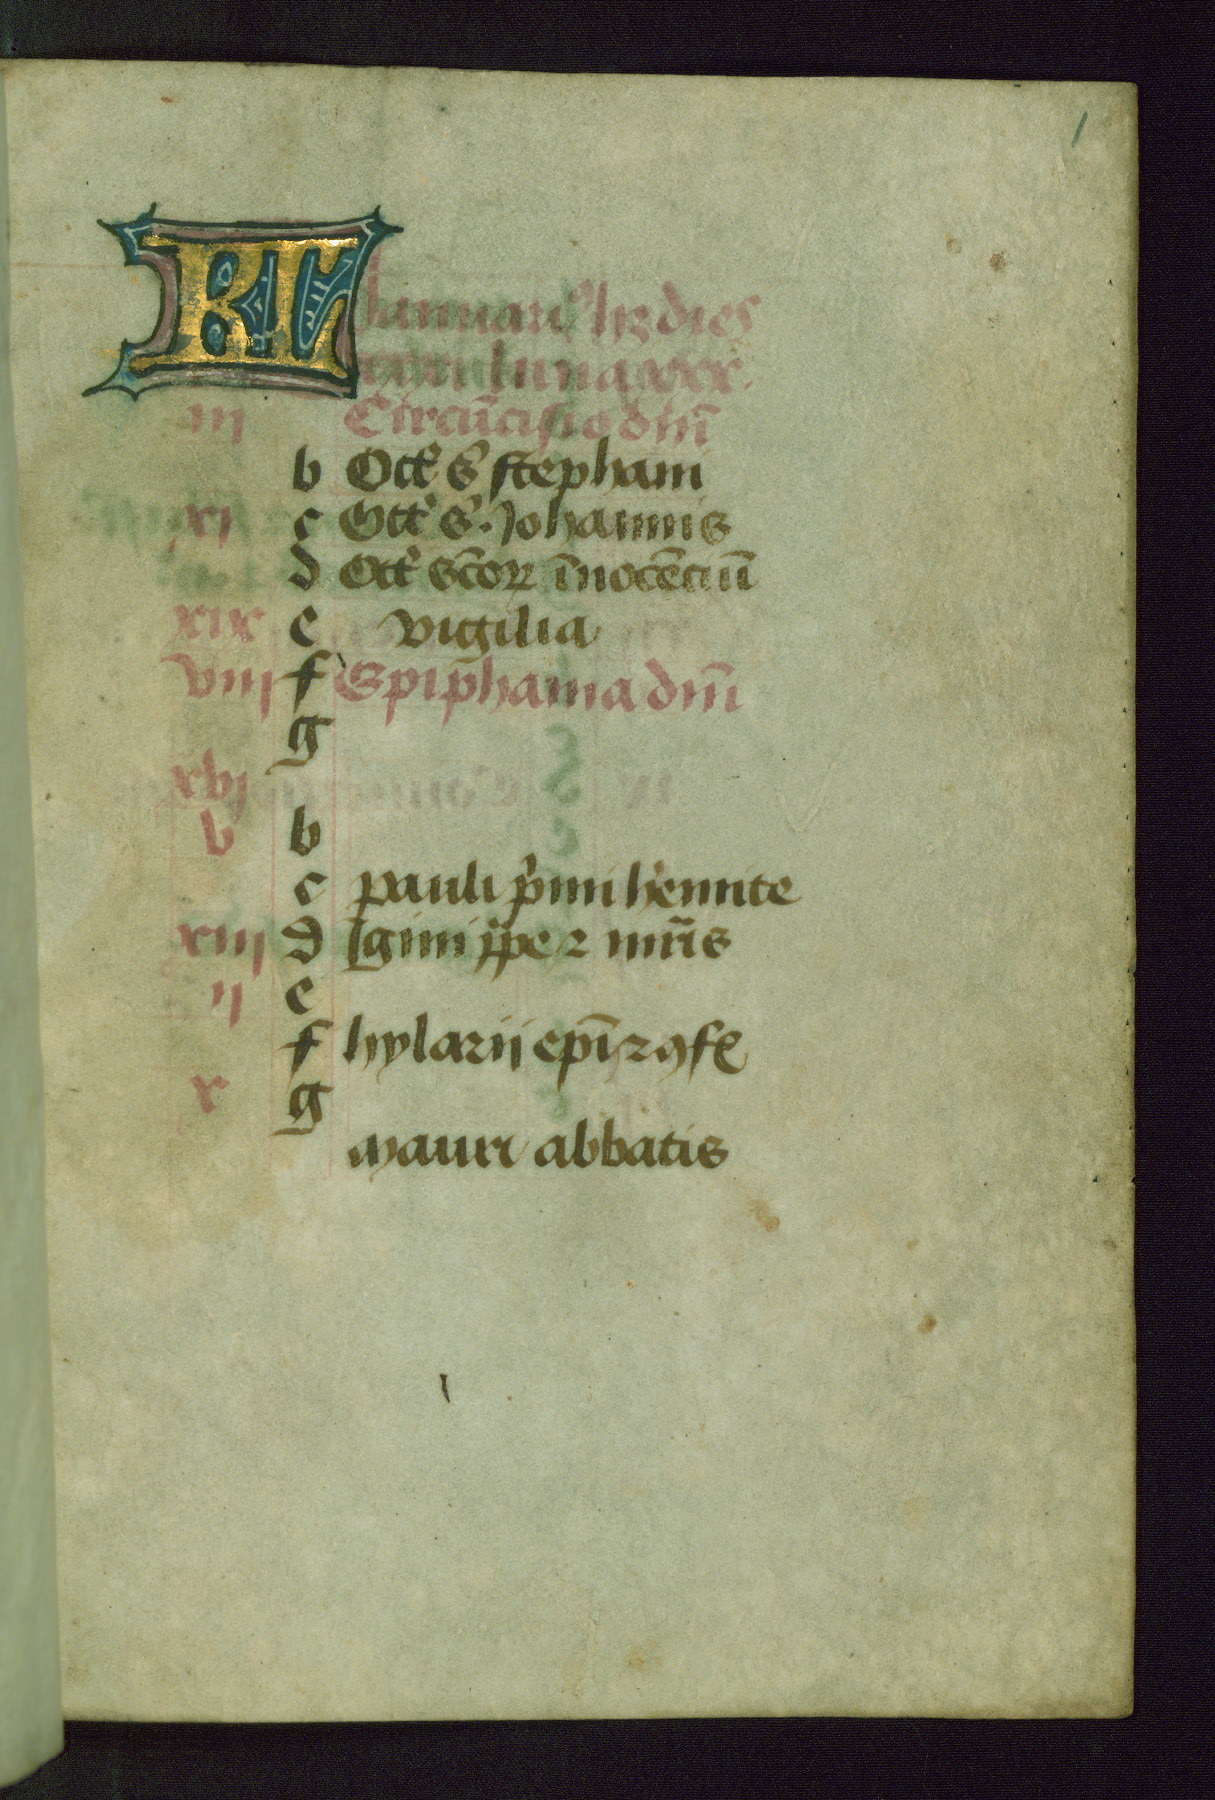 1
KL Januari9 hꝫ dies
xxxi luna xxx.
iij Circūcisio dn̄i
b Oct' s' stephani
xi c Oct' s' Johannis
d Oct' scōꝝ īnocēciū
xix e vigilia
viij f Epiphania dn̄i
g
xvj
v b
c pauli p'mi h'emite
xiij d Igini pp̄e ⁊ mr̄is
ij e
f hylarij ep̄i ⁊ ꝯf
x g
Mauri abbatis